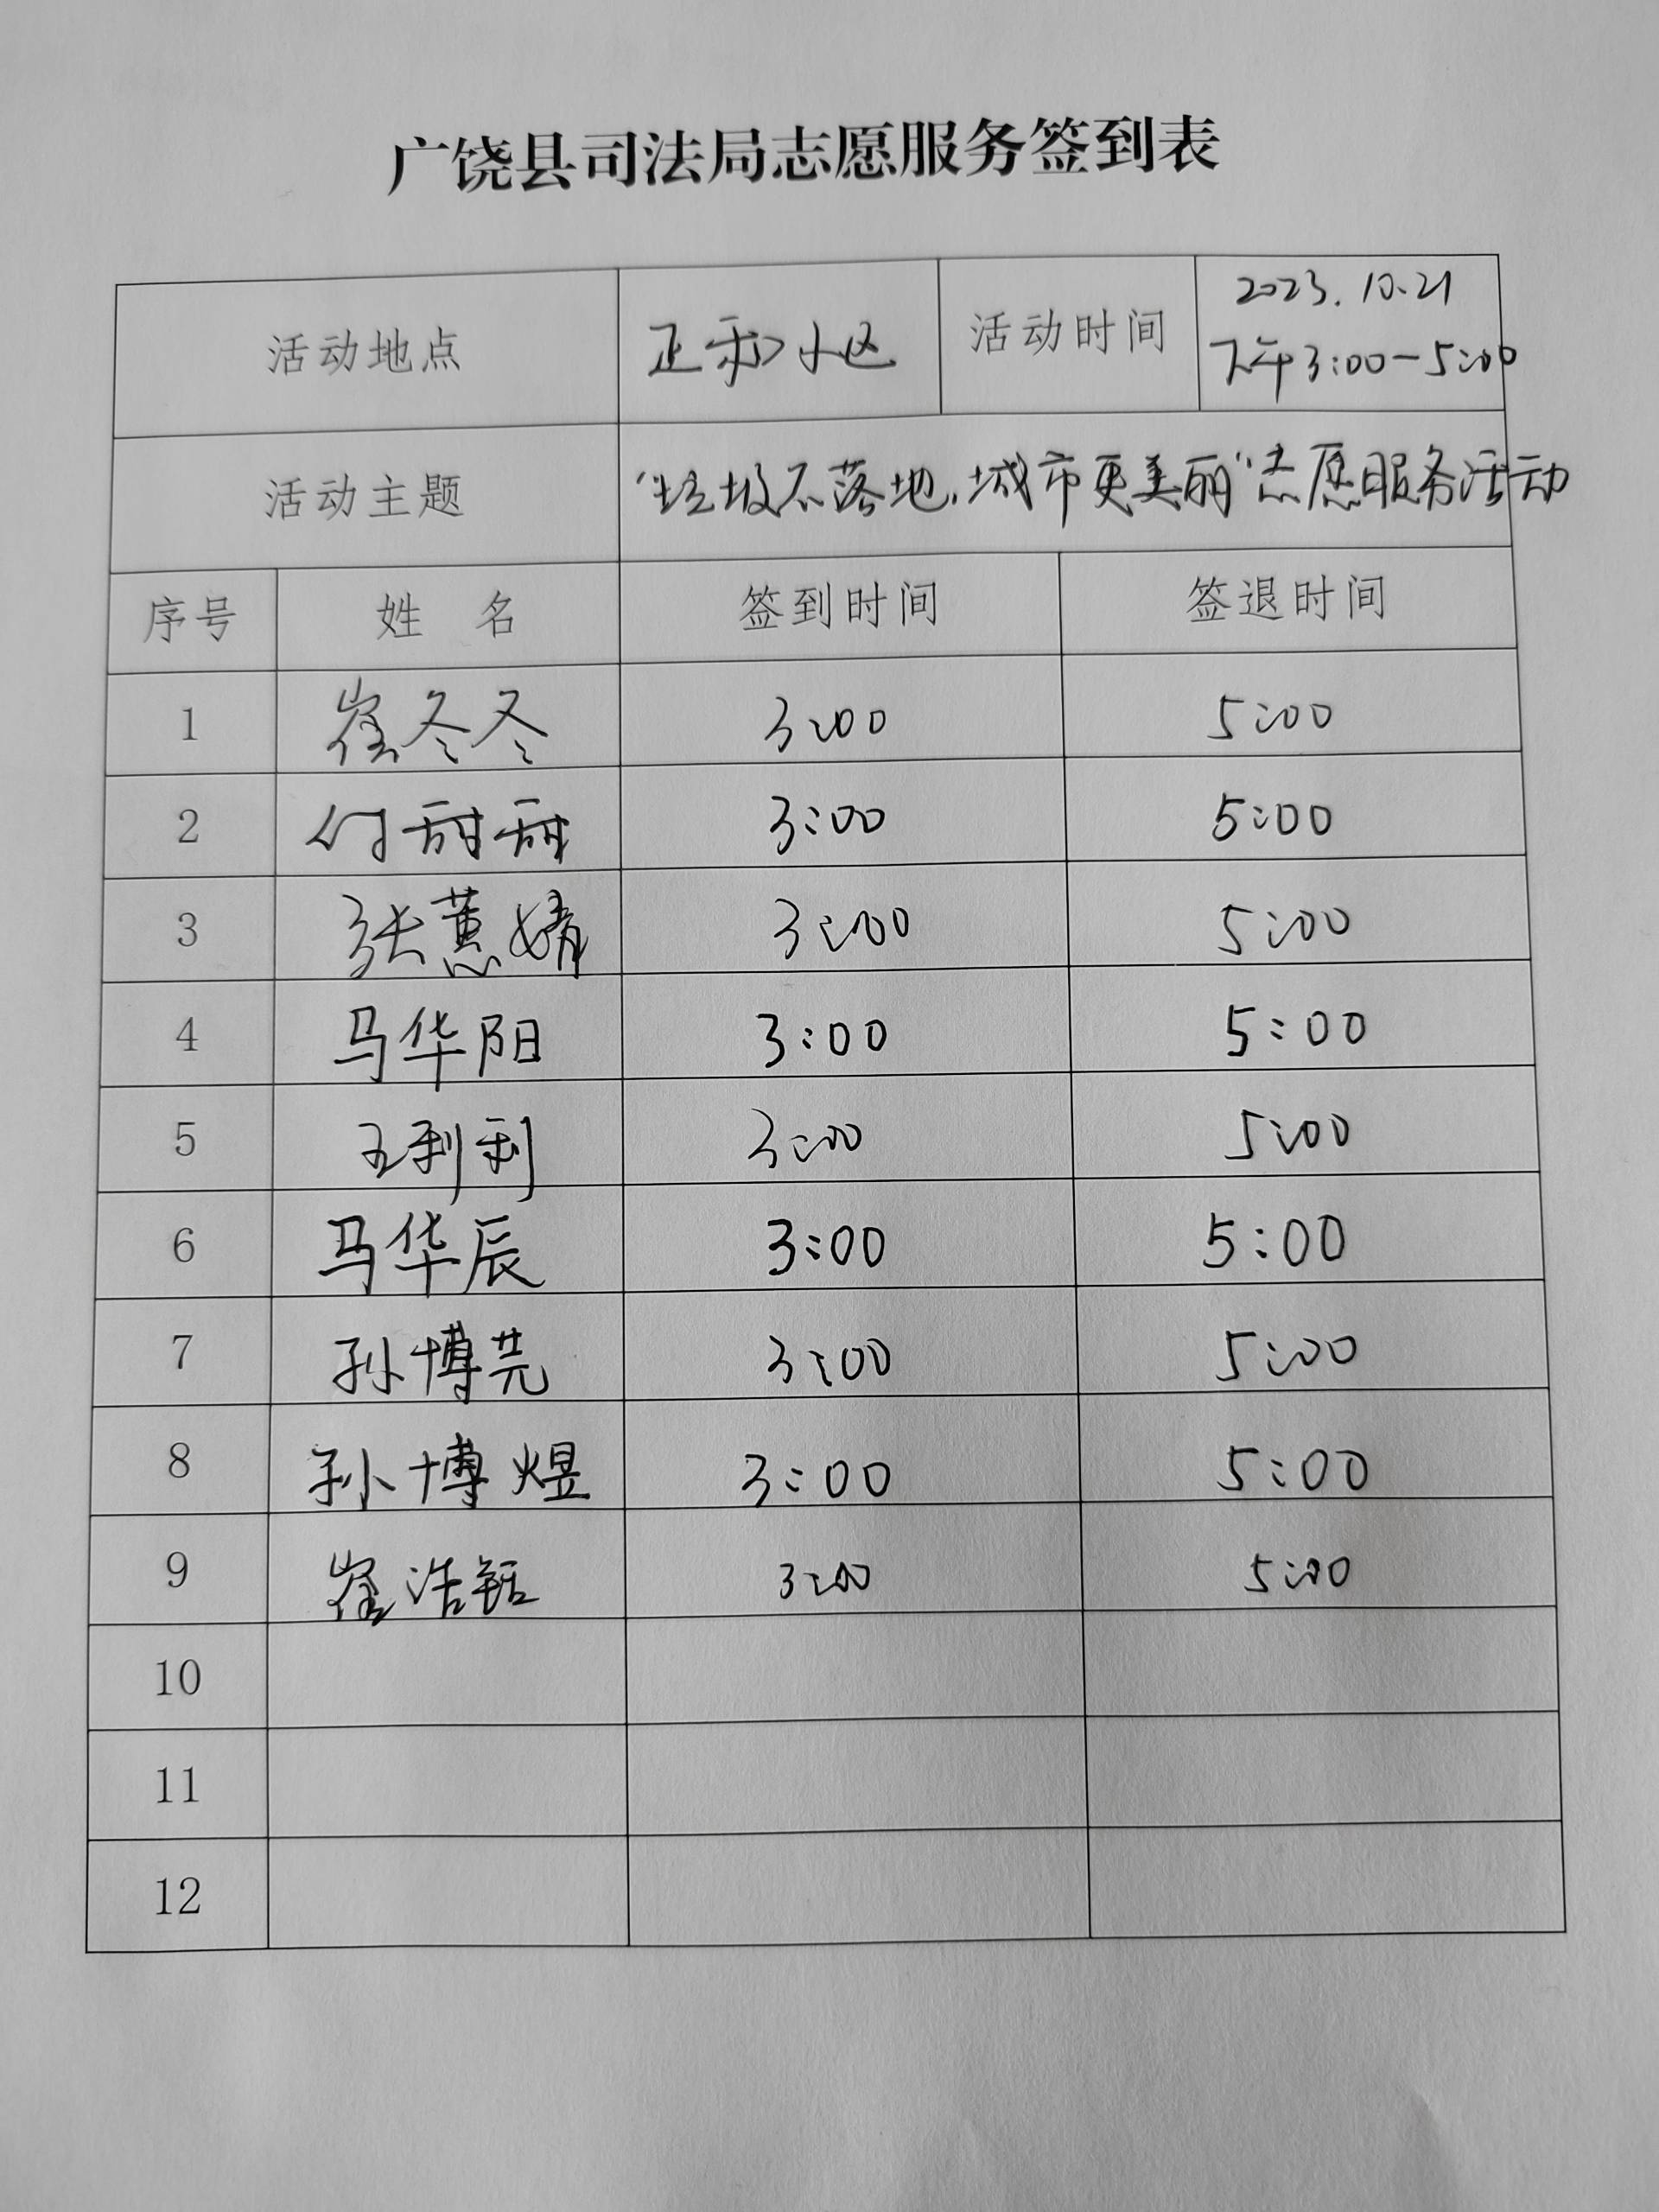 广饶县司法局志愿服务签到表
活动地点 正和小区 活动时间 2023.10.21
下午3:00-5:00
活动主题 "垃圾不落地,城市更美丽"志愿服务活动
序号 姓 名 签到时间 签退时间
1 崔冬冬 3:00 5:00
2 甜甜 3:00 5:00
3 张蕙婧 3:00 5:00
4 马华阳 3:00 5:00
5 王利利 3:00 5:00
6 马华辰 3:00 5:00
7 孙博 3:00 5:00
8 孙博煜 3:00 5:00
9 崔浩 3:00 5:00
10
11
12